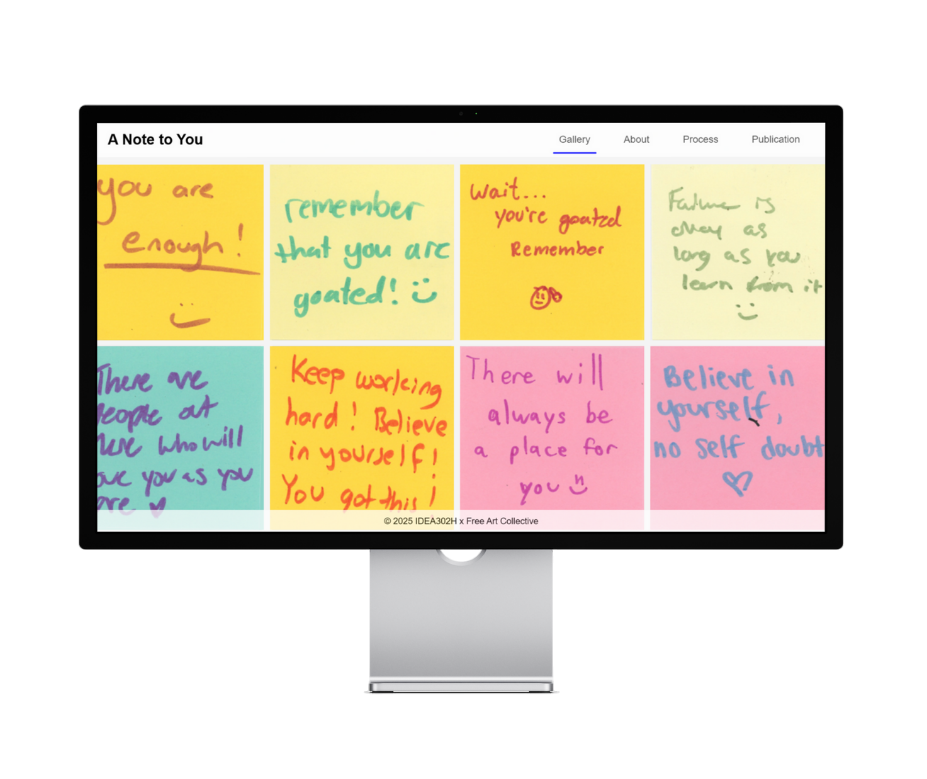 A Note to You
Gallery About Process Publication
you are
enough!
remember
that you are
goated! :)
Wait...
you're goated
Remember
Failure is
okay as
long as you
learn from it
There are
people out
here who will
love you as you
are ♥
Keep working
hard! Believe
in yourself!
You got this!
There will
always be
a place for
you
Believe in
yourself,
no self doubt
♡
© 2025 IDEA302H x Free Art Collective